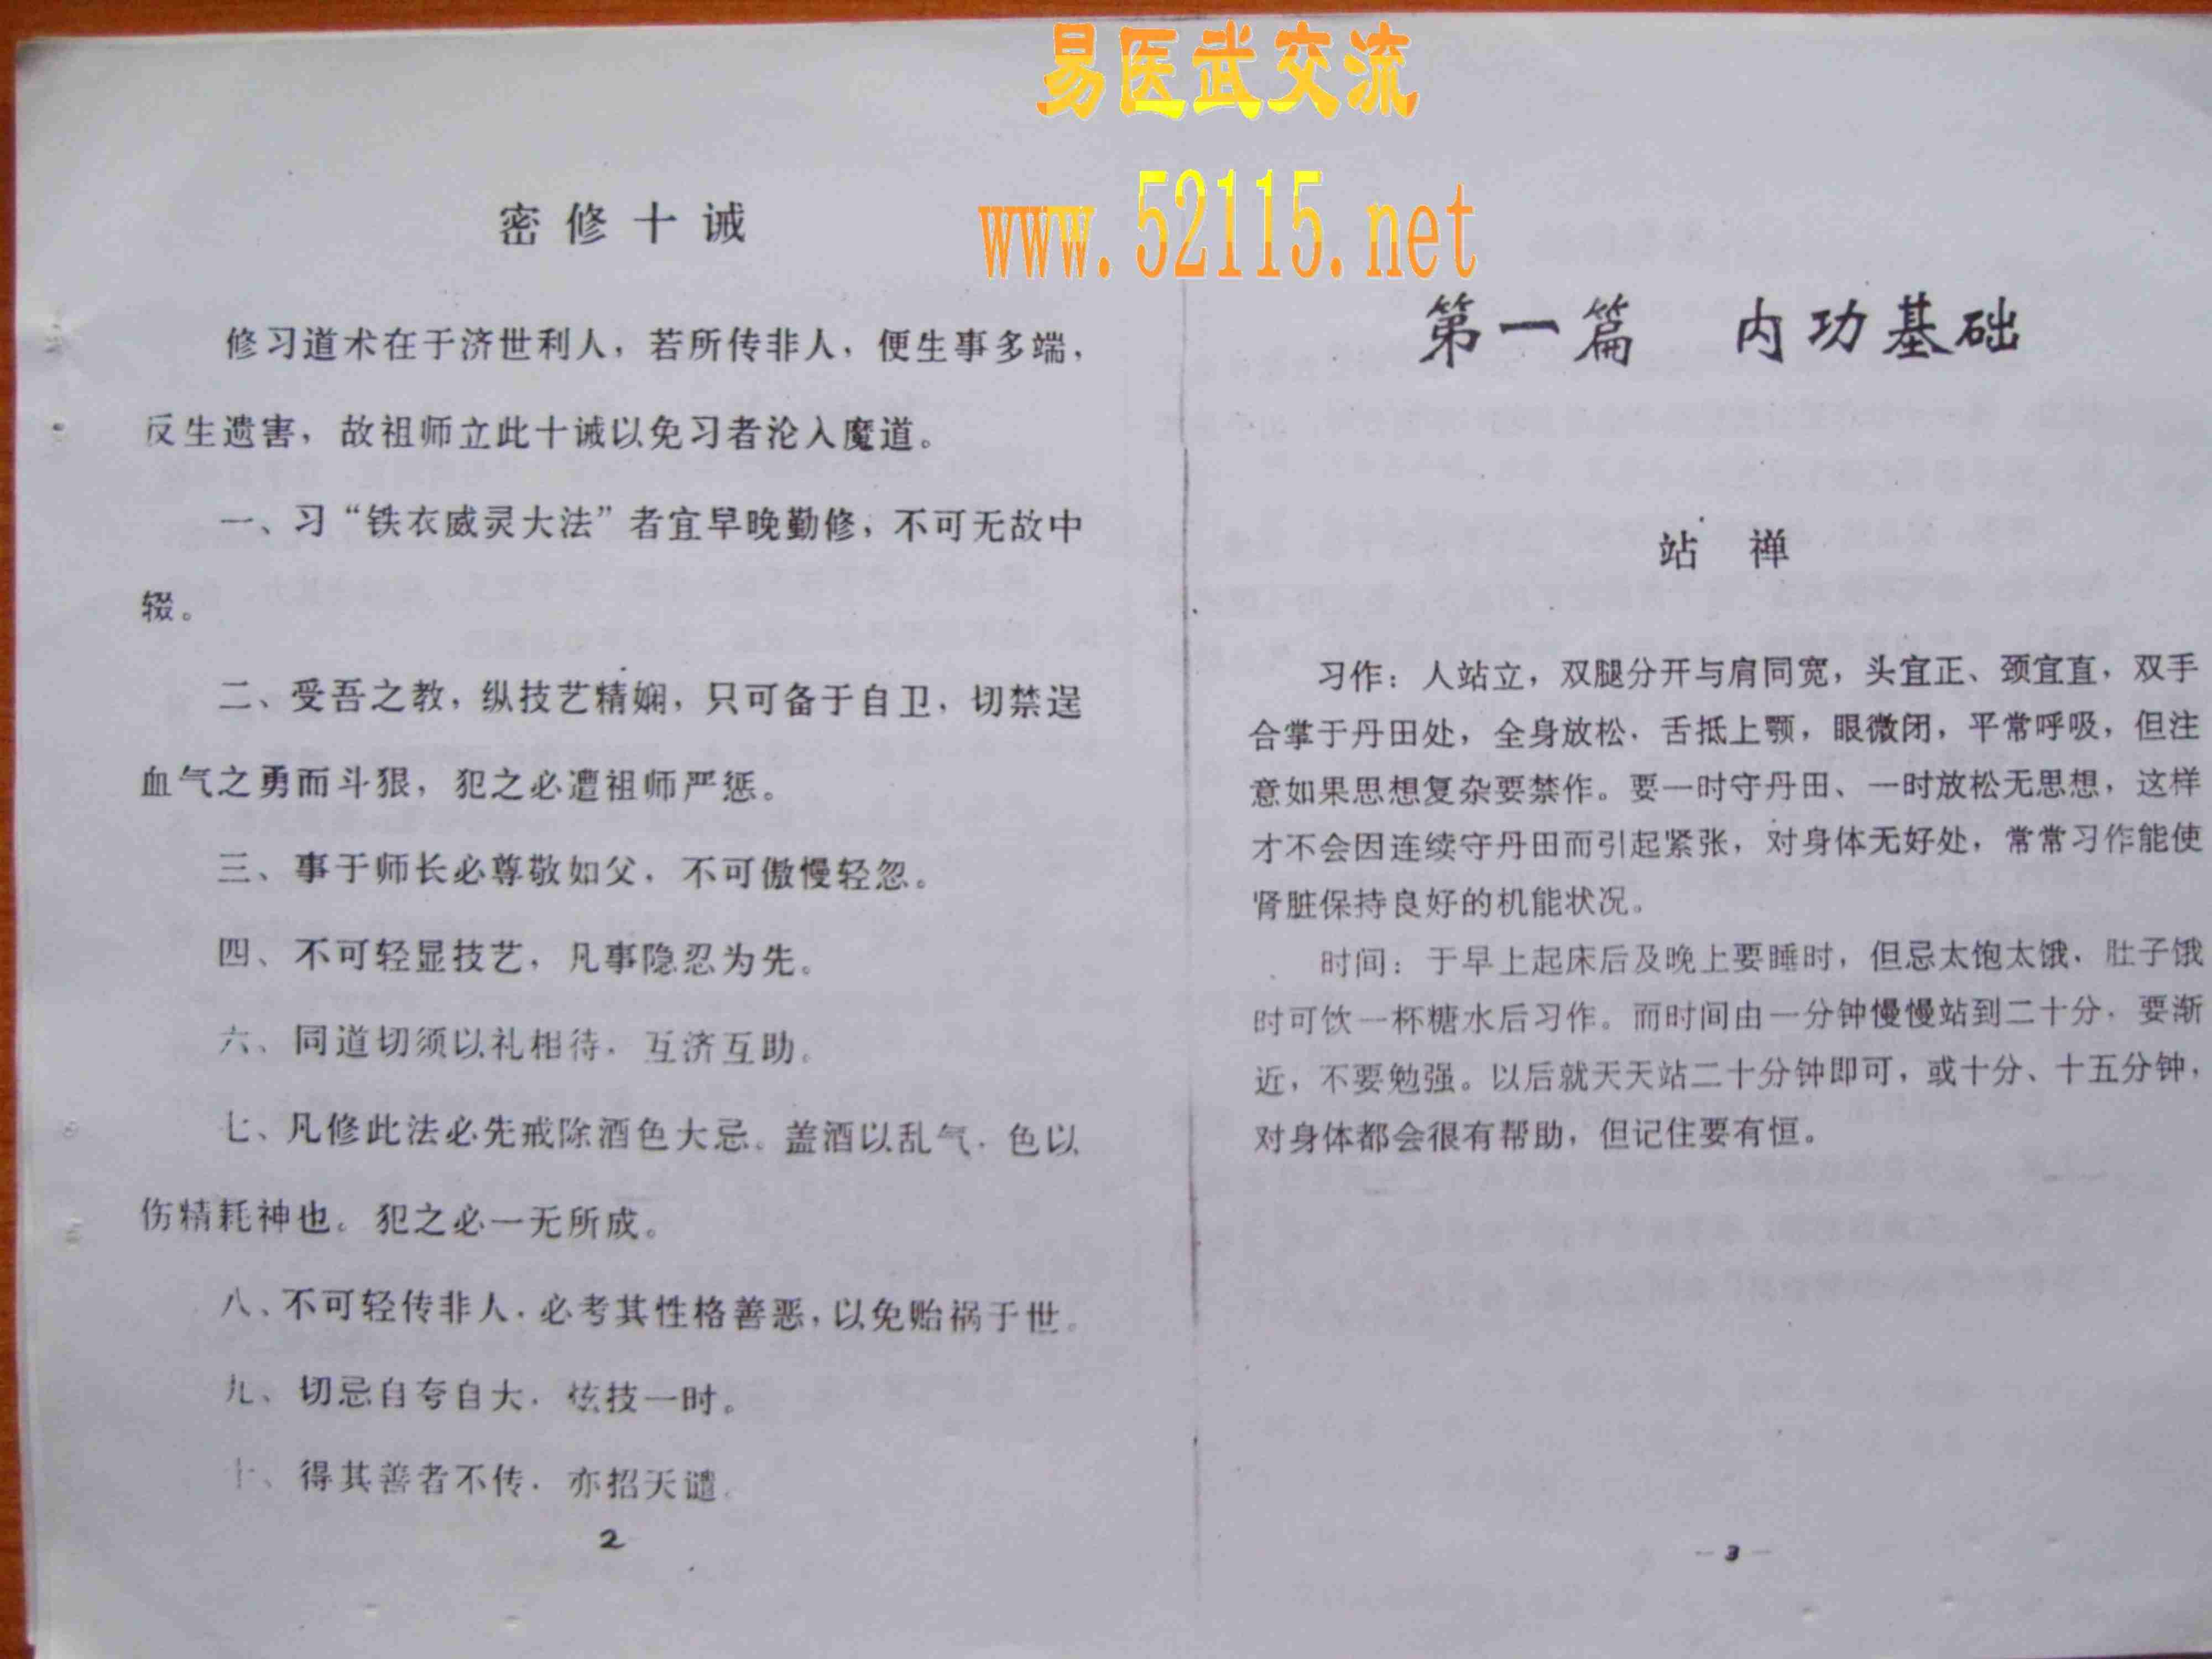 易医武交流
www.52115.net
密修十诫
修习道术在于济世利人，若所传非人，便生事多端，
反生遗害，故祖师立此十诫以免习者沦入魔道。
一、习“铁衣威灵大法”者宜早晚勤修，不可无故中
辍。
二、受吾之教，纵技艺精娴，只可备于自卫，切禁逞
血气之勇而斗狠，犯之必遭祖师严惩。
三、事于师长必尊敬如父，不可傲慢轻忽。
四、不可轻显技艺，凡事隐忍为先。
六、同道切须以礼相待，互济互助。
七、凡修此法必先戒除酒色大忌。盖酒以乱气，色以
伤精耗神也。犯之必一无所成。
八、不可轻传非人，必考其性格善恶，以免贻祸于世。
九、切忌自夸自大，炫技一时。
十、得其善者不传，亦招天谴。
2
第一篇 内功基础
站禅
习作：人站立，双腿分开与肩同宽，头宜正、颈宜直，双手
合掌于丹田处，全身放松，舌抵上颚，眼微闭，平常呼吸，但注
意如果思想复杂要禁作。要一时守丹田、一时放松无思想，这样
才不会因连续守丹田而引起紧张，对身体无好处，常常习作能使
肾脏保持良好的机能状况。
时间：于早上起床后及晚上要睡时，但忌太饱太饿，肚子饿
时可饮一杯糖水后习作。而时间由一分钟慢慢站到二十分，要渐
近，不要勉强。以后就天天站二十分钟即可，或十分、十五分钟，
对身体都会很有帮助，但记住要有恒。
— 3 —